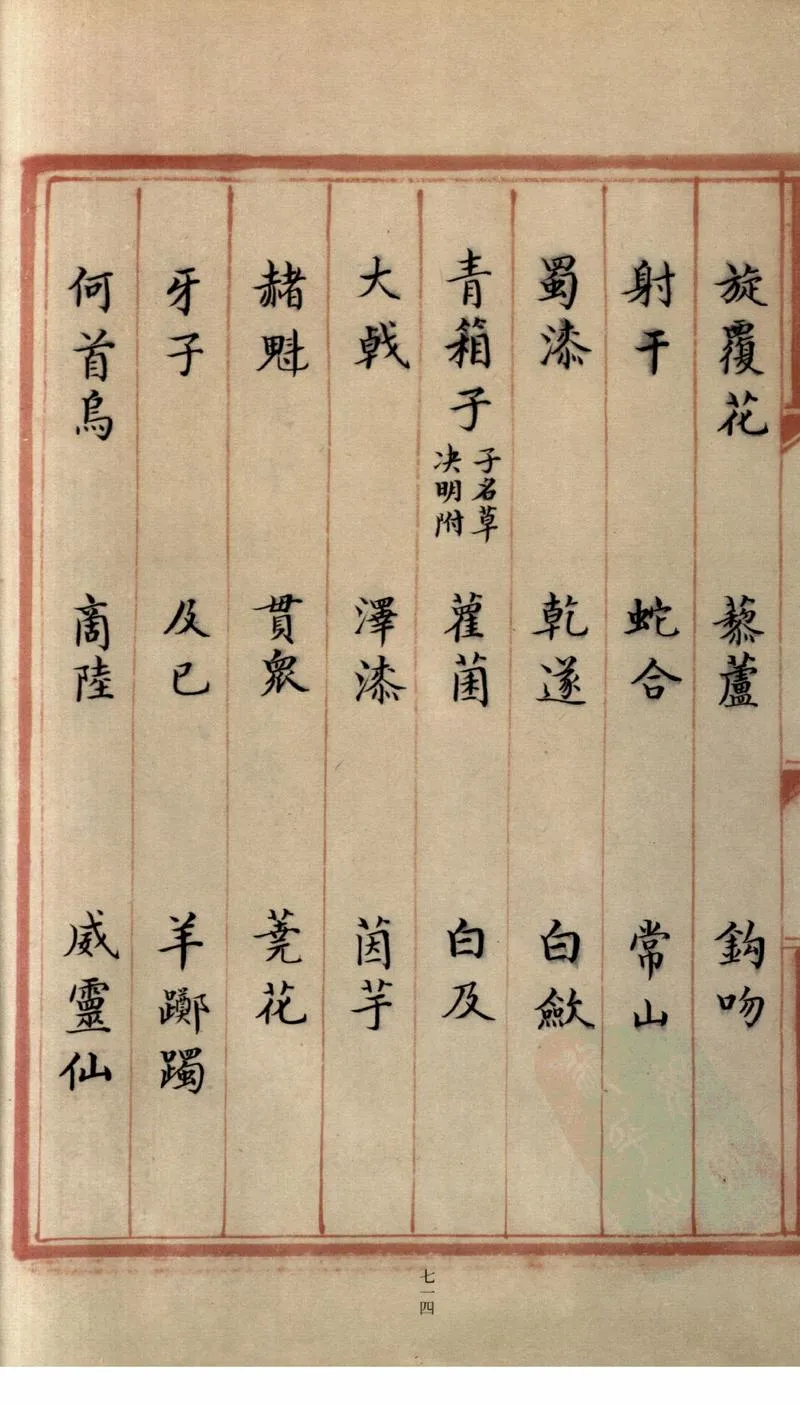 旋覆花 藜蘆 鈎吻
射干 蛇合 常山
蜀漆 乾遂 白歛
青箱子 子名草决明附 雚菌 白及
大戟 澤漆 茵芋
赭魁 貫眾 蕘花
牙子 及已 羊躑躅
何首烏 商陸 威靈仙
七一四